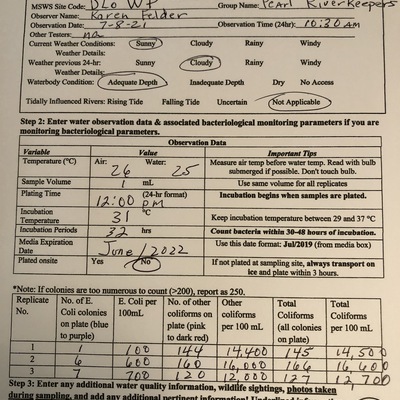 MSWS Site Code: DLO WP Group Name: Pearl Riverkeepers
Observer Name: Karen Felder
Observation Date: 7-8-21 Observation Time (24hr): 10:30 AM
Other Testers: na
Current Weather Conditions: Sunny Cloudy Rainy Windy
Weather Details:
Weather previous 24-hr: Sunny Cloudy Rainy Windy
Weather Details:
Waterbody Condition: Adequate Depth Inadequate Depth Dry No Access
Tidally Influenced Rivers: Rising Tide Falling Tide Uncertain Not Applicable
Step 2: Enter water observation data & associated bacteriological monitoring parameters if you are
monitoring bacteriological parameters.
Observation Data
Variable Value Important Tips
Temperature (°C) Air: 26 Water: 25 Measure air temp before water temp. Read with bulb
submerged if possible. Don't touch bulb.
Sample Volume 1 mL Use same volume for all replicates
Plating Time 12:00 pm (24-hr format) Incubation begins when samples are plated.
Incubation
Temperature 31 °C Keep incubation temperature between 29 and 37 °C
Incubation Periods 32 hrs Count bacteria within 30-48 hours of incubation.
Media Expiration
Date June/2022 Use this date format: Jul/2019 (from media box)
Plated onsite Yes No If not plated at sampling site, always transport on
ice and plate within 3 hours.
*Note: If colonies are too numerous to count (>200), report as 250.
Replicate No. No. of E. Coli colonies on plate (blue to purple) E. Coli per 100mL No. of other coliforms on plate (pink to dark red) Other coliforms per 100 mL Total Coliforms (all colonies on plate) Total Coliforms per 100 mL
1 1 100 144 14,400 145 14,500
2 6 600 160 16,000 166 16,600
3 7 700 120 12,000 127 12,700
Step 3: Enter any additional water quality information, wildlife sightings, photos taken
during sampling, and add any additional pertinent information!